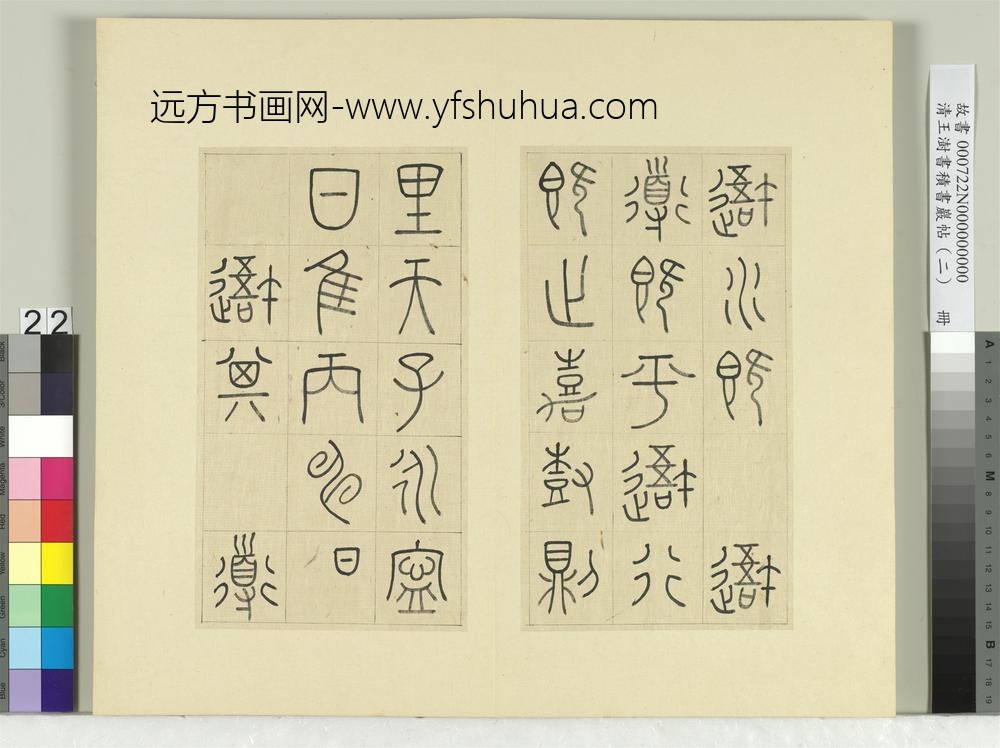 远方书画网-www.yfshuhua.com
故書 000722N000000000
清王澍書積書巖帖(二) 冊
䢒水既䢒
導既平䢒行
既止嘉尌則
里天子永寍
日隹丙申日
䢒其導
22
Black
3/Color
White
Magenta
Red
Yellow
Green
Cyan
Blue
A 1 2 3 4 5 6 M 8 9 10 11 12 13 14 15 B 17 18 19